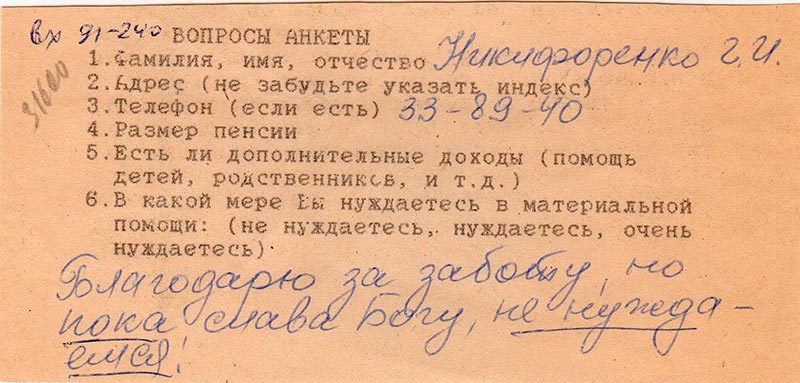 вх 91-240 ВОПРОСЫ АНКЕТЫ
1. Фамилия, имя, отчество Никифоренко Г.И.
2. Адрес (не забудьте указать индекс)
3. Телефон (если есть) 33-89-40
4. Размер пенсии
5. Есть ли дополнительные доходы (помощь
детей, родственников, и т.д.)
6. В какой мере Вы нуждаетесь в материальной
помощи: (не нуждаетесь, нуждаетесь, очень
нуждаетесь)
Благодарю за заботу, но
пока слава Богу, не нужда-
емся!